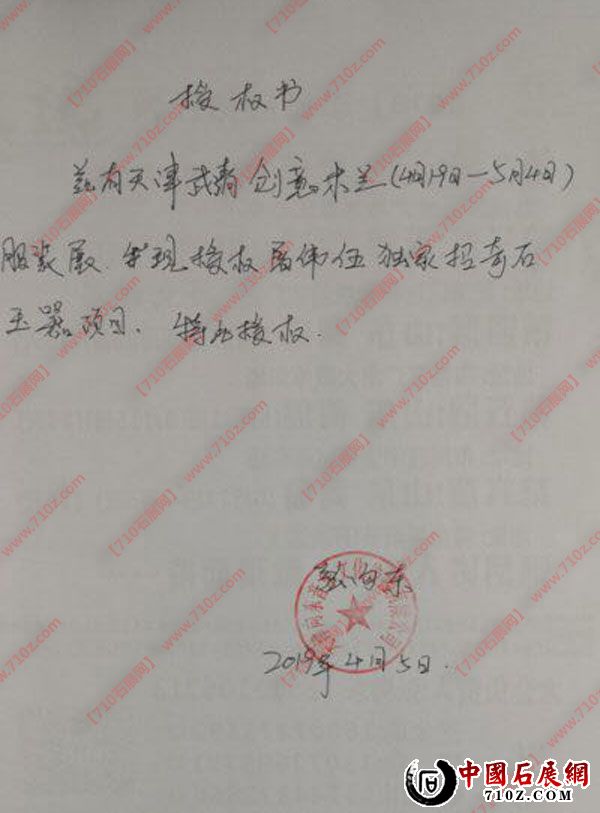 授权书
兹有天津武清创意米兰(4月19日—5月4日)
服装展 我现授权 伟伍 独家招奇石
玉器项目. 特此授权.
向东
2019年4月5日.
中國石展網
710Z.COM
【710石展网】www.710z.com